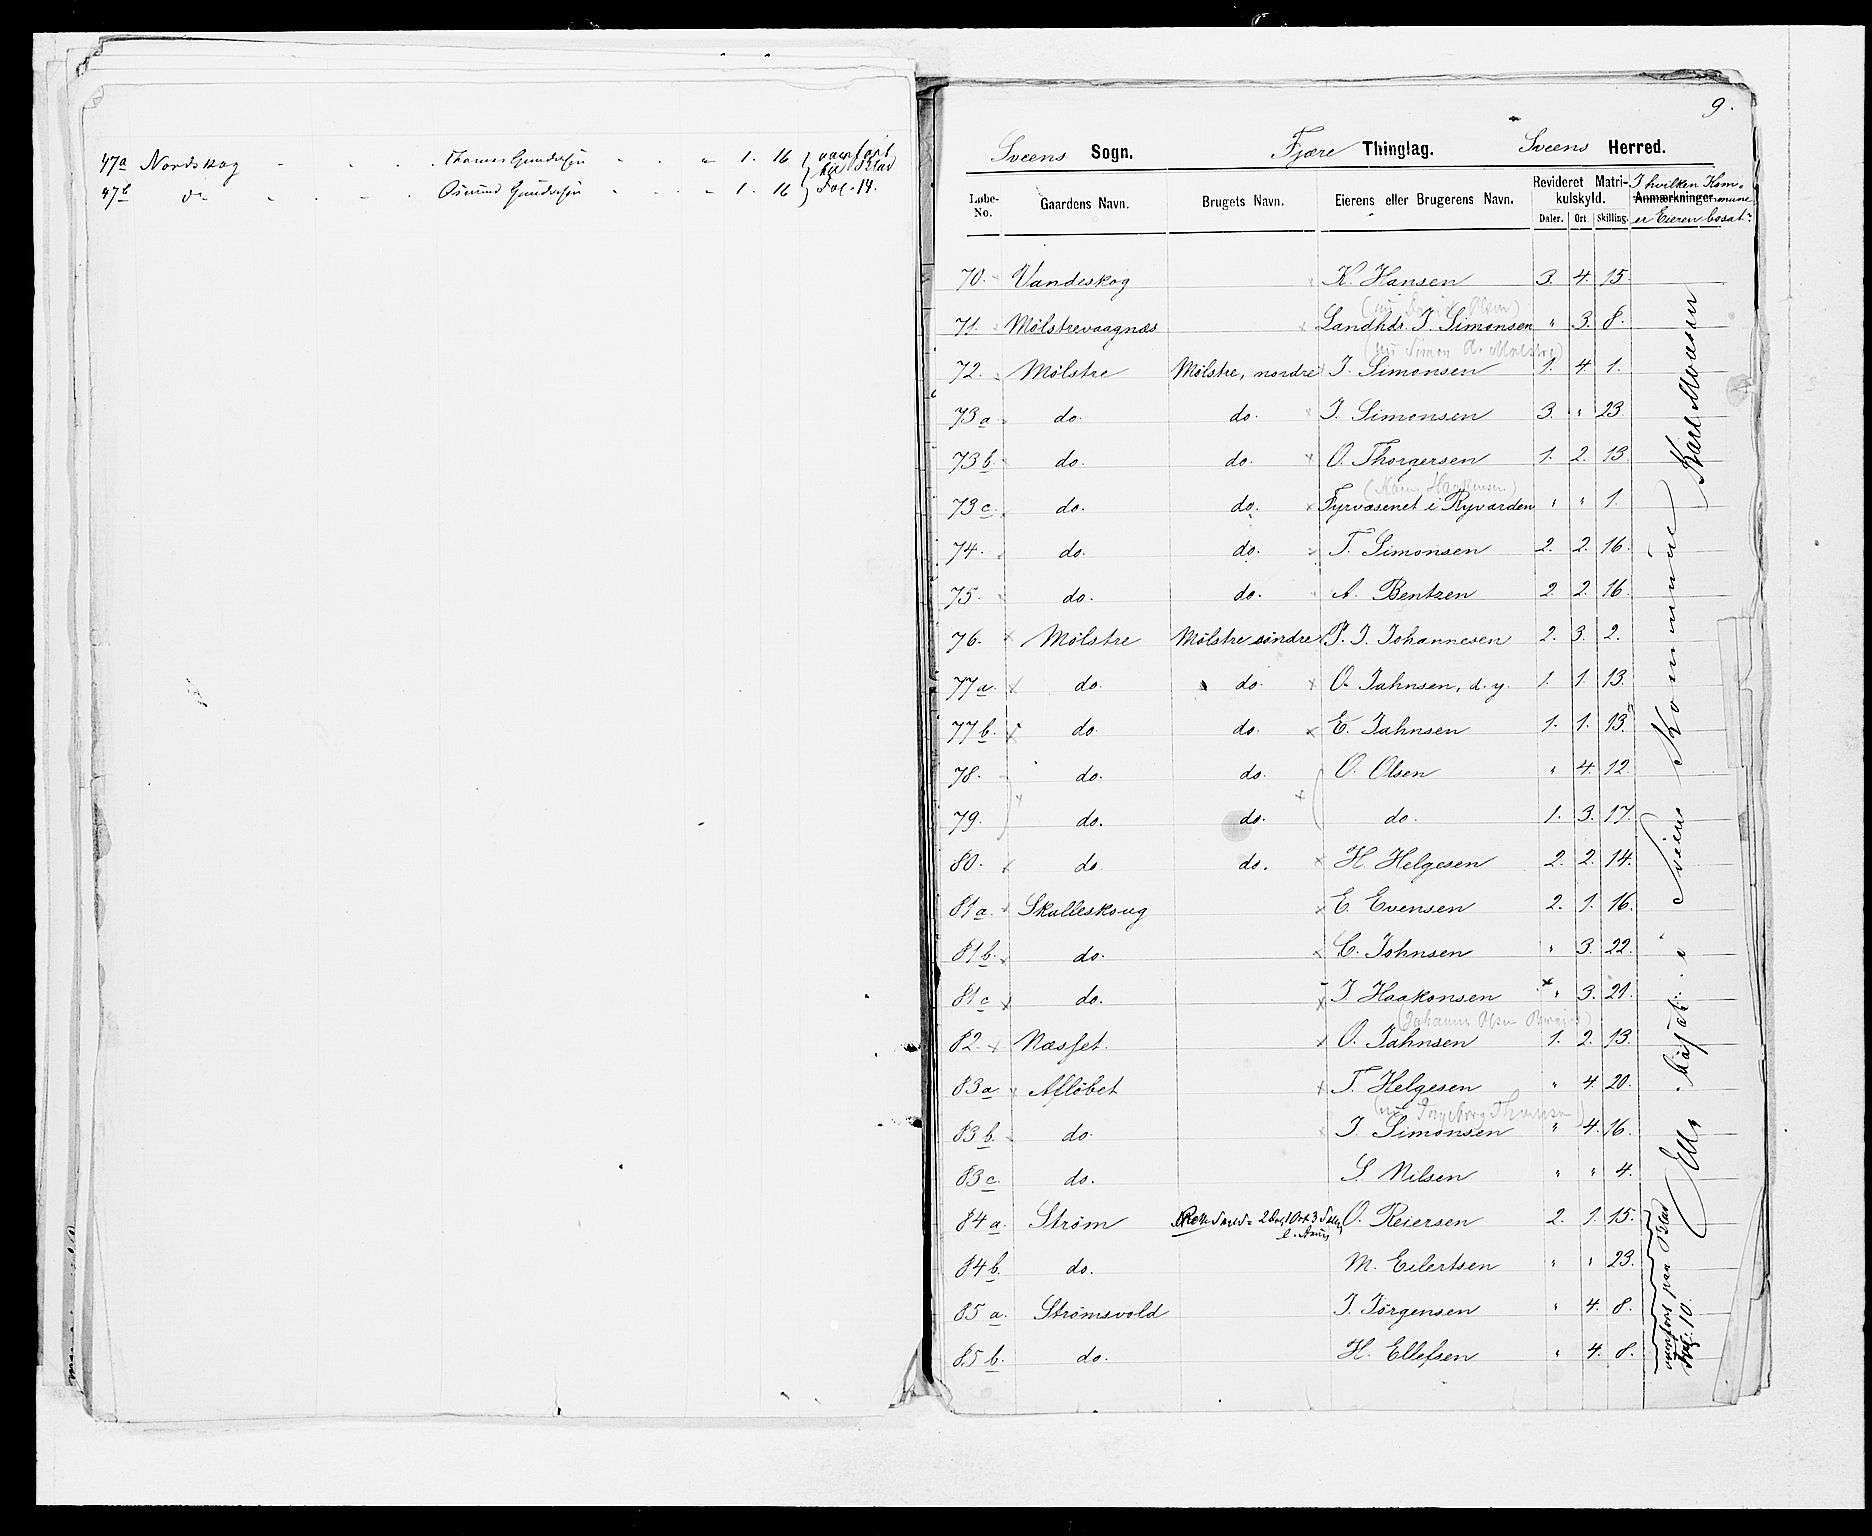 47a Nordskog - . . . Thomas Gundersen . . " 1. 16
47b do - . . . Osmund Gundersen . . . " 1. 16 Fol. 14.
9.
Sveens Sogn. Fjære Thinglag. Sveens Herred.
Løbe-No. Gaardens Navn. Brugets Navn. Eierens eller Brugerens Navn. Revideret Matrikulskyld. Daler. Ort. Skilling. Anmærkninger. I hvilken Kommune er Eieren bosat.
70. Vandeskog K. Hansen 3. 4. 15.
71. Mølstrevaagnæs Landhdr. I. Simonsen " 3. 8.
(nu Simon A. Mølstre)
72. Mølstre Mølstre, nordre I. Simonsen 1. 4. 1.
73a. do. do. I. Simonsen 3. " 23.
73b. do. do. O. Thorgersen 1. 2. 13.
73c. do. do. Fyrvæsenet i Ryvarden " " 1.
74. do. do. T. Simonsen 2. 2. 16.
75. do. do. A. Bentzen 2. 2. 16.
76. Mølstre Mølstre søndre P. I. Johannesen 2. 3. 2.
77a. do. do. O. Jahnsen, d. y. 1. 1. 13.
77b. do. do. E. Jahnsen 1. 1. 13.
78. do. do. O. Olsen " 4. 12.
79. do. do. do. 1. 3. 17.
80. do. do. H. Helgesen 2. 2. 14.
81a. Skalleskoug E. Evensen 2. 1. 16.
81b. do. C. Johnsen " 3. 22.
81c do. I Haakonsen " 3. 21.
82. Næsset. O. Jahnsen 1. 2. 13.
83a Afløbet T. Helgesen " 4. 20.
(nu Ingeborg Thomsen)
83b. do. I. Simonsen " 4. 16.
83c. do. S. Nilsen " " 4.
84a. Strøm O. Reiersen 2. 1. 15.
84b. do. M. Eilertsen " " 23.
85a. Strømsvold I. Jørgensen " 4. 8.
85b. do. H. Ellefsen " 4. 8.
Alle bosat i Sveen Kommune
overført paa Blad
Fol. 10.